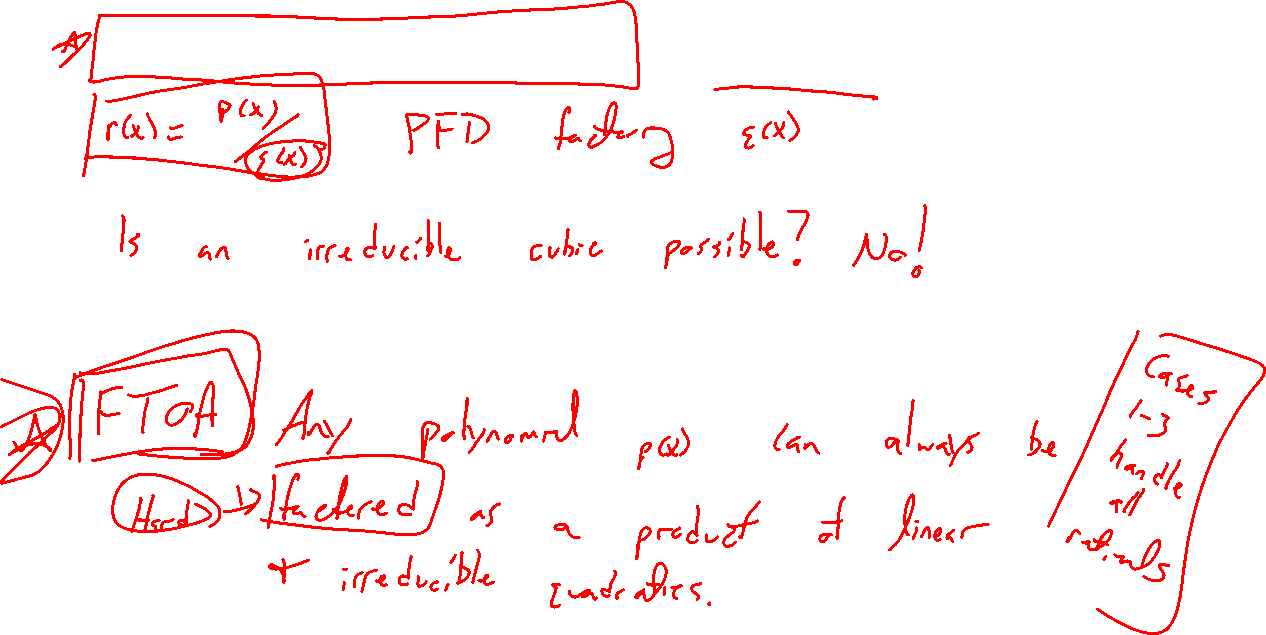 r(x) = p(x)/q(x) PFD factoring q(x)
Is an irreducible cubic possible? No!
FToA Any polynomial p(x) can always be
Hard → factored as a product of linear
+ irreducible quadratics.
Cases
1-3
handle
all
rationals